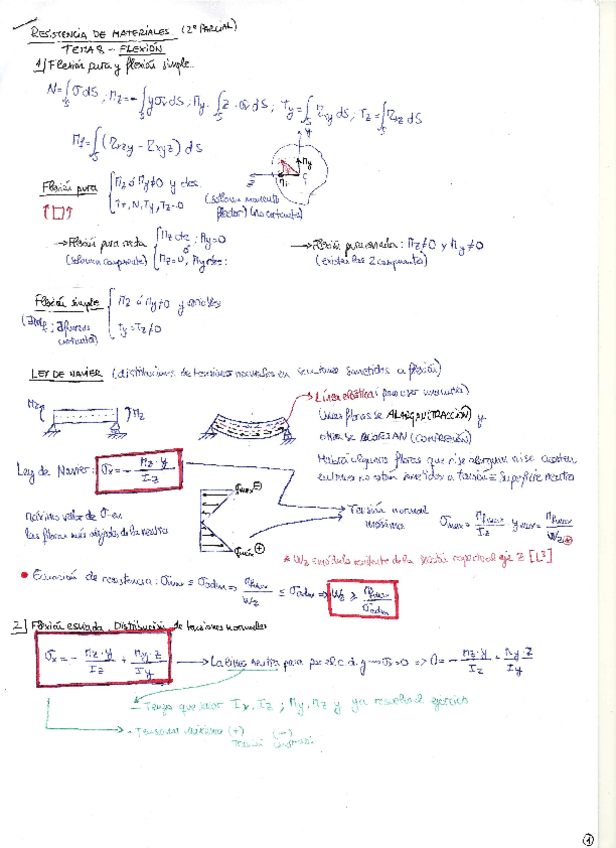 RESISTENCIA DE MATERIALES (2º PARCIAL)
TEMA 8 - FLEXIÓN
1/ Flexión pura y flexión simple
N=∫σdS ; Mz=-∫yσdS ; My=∫z·σdS ; Ty=∫τxy dS ; Tz=∫τxz dS
(τxzy - τxyz) dS
Flexión pura { Mz ó My≠0 y ctes.
N, Ty, Tz=0
(solo un momento flector) (no cortante)
→ Flexión pura recta { Mz cte ; My=0
ó
(solo una componente) { Mz=0,
→ Flexión pura esviada: Mz≠0 y My≠0
(existen las 2 componentes)
Flexión simple { Mz ó My≠0 y variables
Ty=Tz≠0
LEY DE NAVIER (distribuciones de tensiones normales en secciones sometidas a flexión)
Mz Mz
→ Línea elástica
Unas fibras se ALARGAN (TRACCIÓN) y
otras se ACORTAN (COMPRESIÓN)
Habrá algunas fibras que ni se alarguen ni se acorten,
entonces no están sometidas a tensión = Superficie neutra
Ley de Navier: σx = - Mz·y / Iz
σmax ⊖
Máximo valor de σ en
las fibras más alejadas de la neutra
σmax ⊕
→ Tensión normal máxima
σmax = Mfmax / Iz · ymax = Mfmax / Wz
* Wz = módulo resistente de la sección respecto al eje z [L³]
• Ecuación de resistencia: σmax ≤ σadm ⇒ Mfmax / Wz ≤ σadm ⇒ Wz ≥ Mfmax / σadm
2/ Flexión esviada. Distribución de tensiones normales
σx = - Mz·y / Iz + My·z / Iy → La línea neutra pasa por el c.d.g → σ=0 ⇒ 0 = - Mz·y / Iz + My·z / Iy
- Tengo que sacar Iy, Iz ; My, Mz y ya resuelvo el ejercicio
- Tensión máxima (+) (-)
1